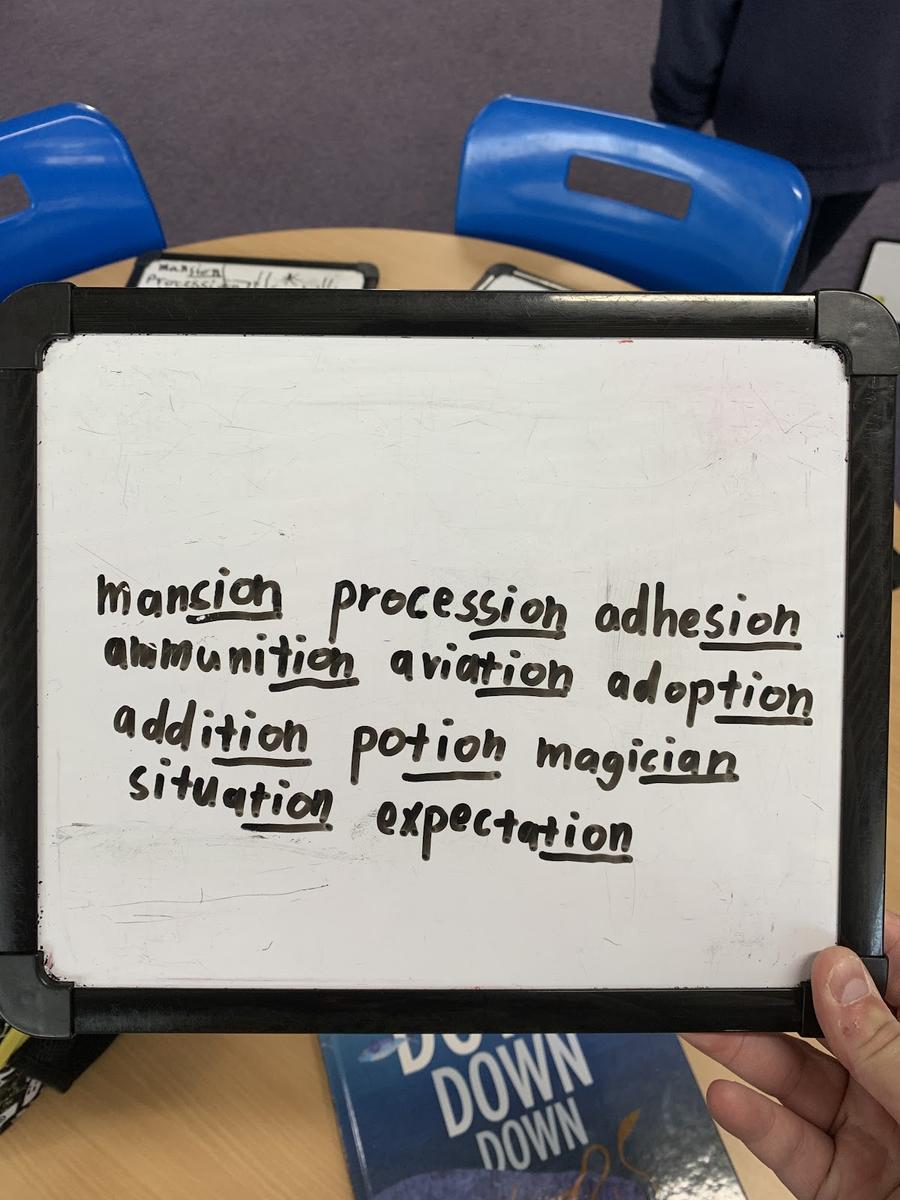 mansion
processi
mansion procession adhesion
ammunition aviation adoption
addition potion magician
situation expectation
DOWN
DOWN